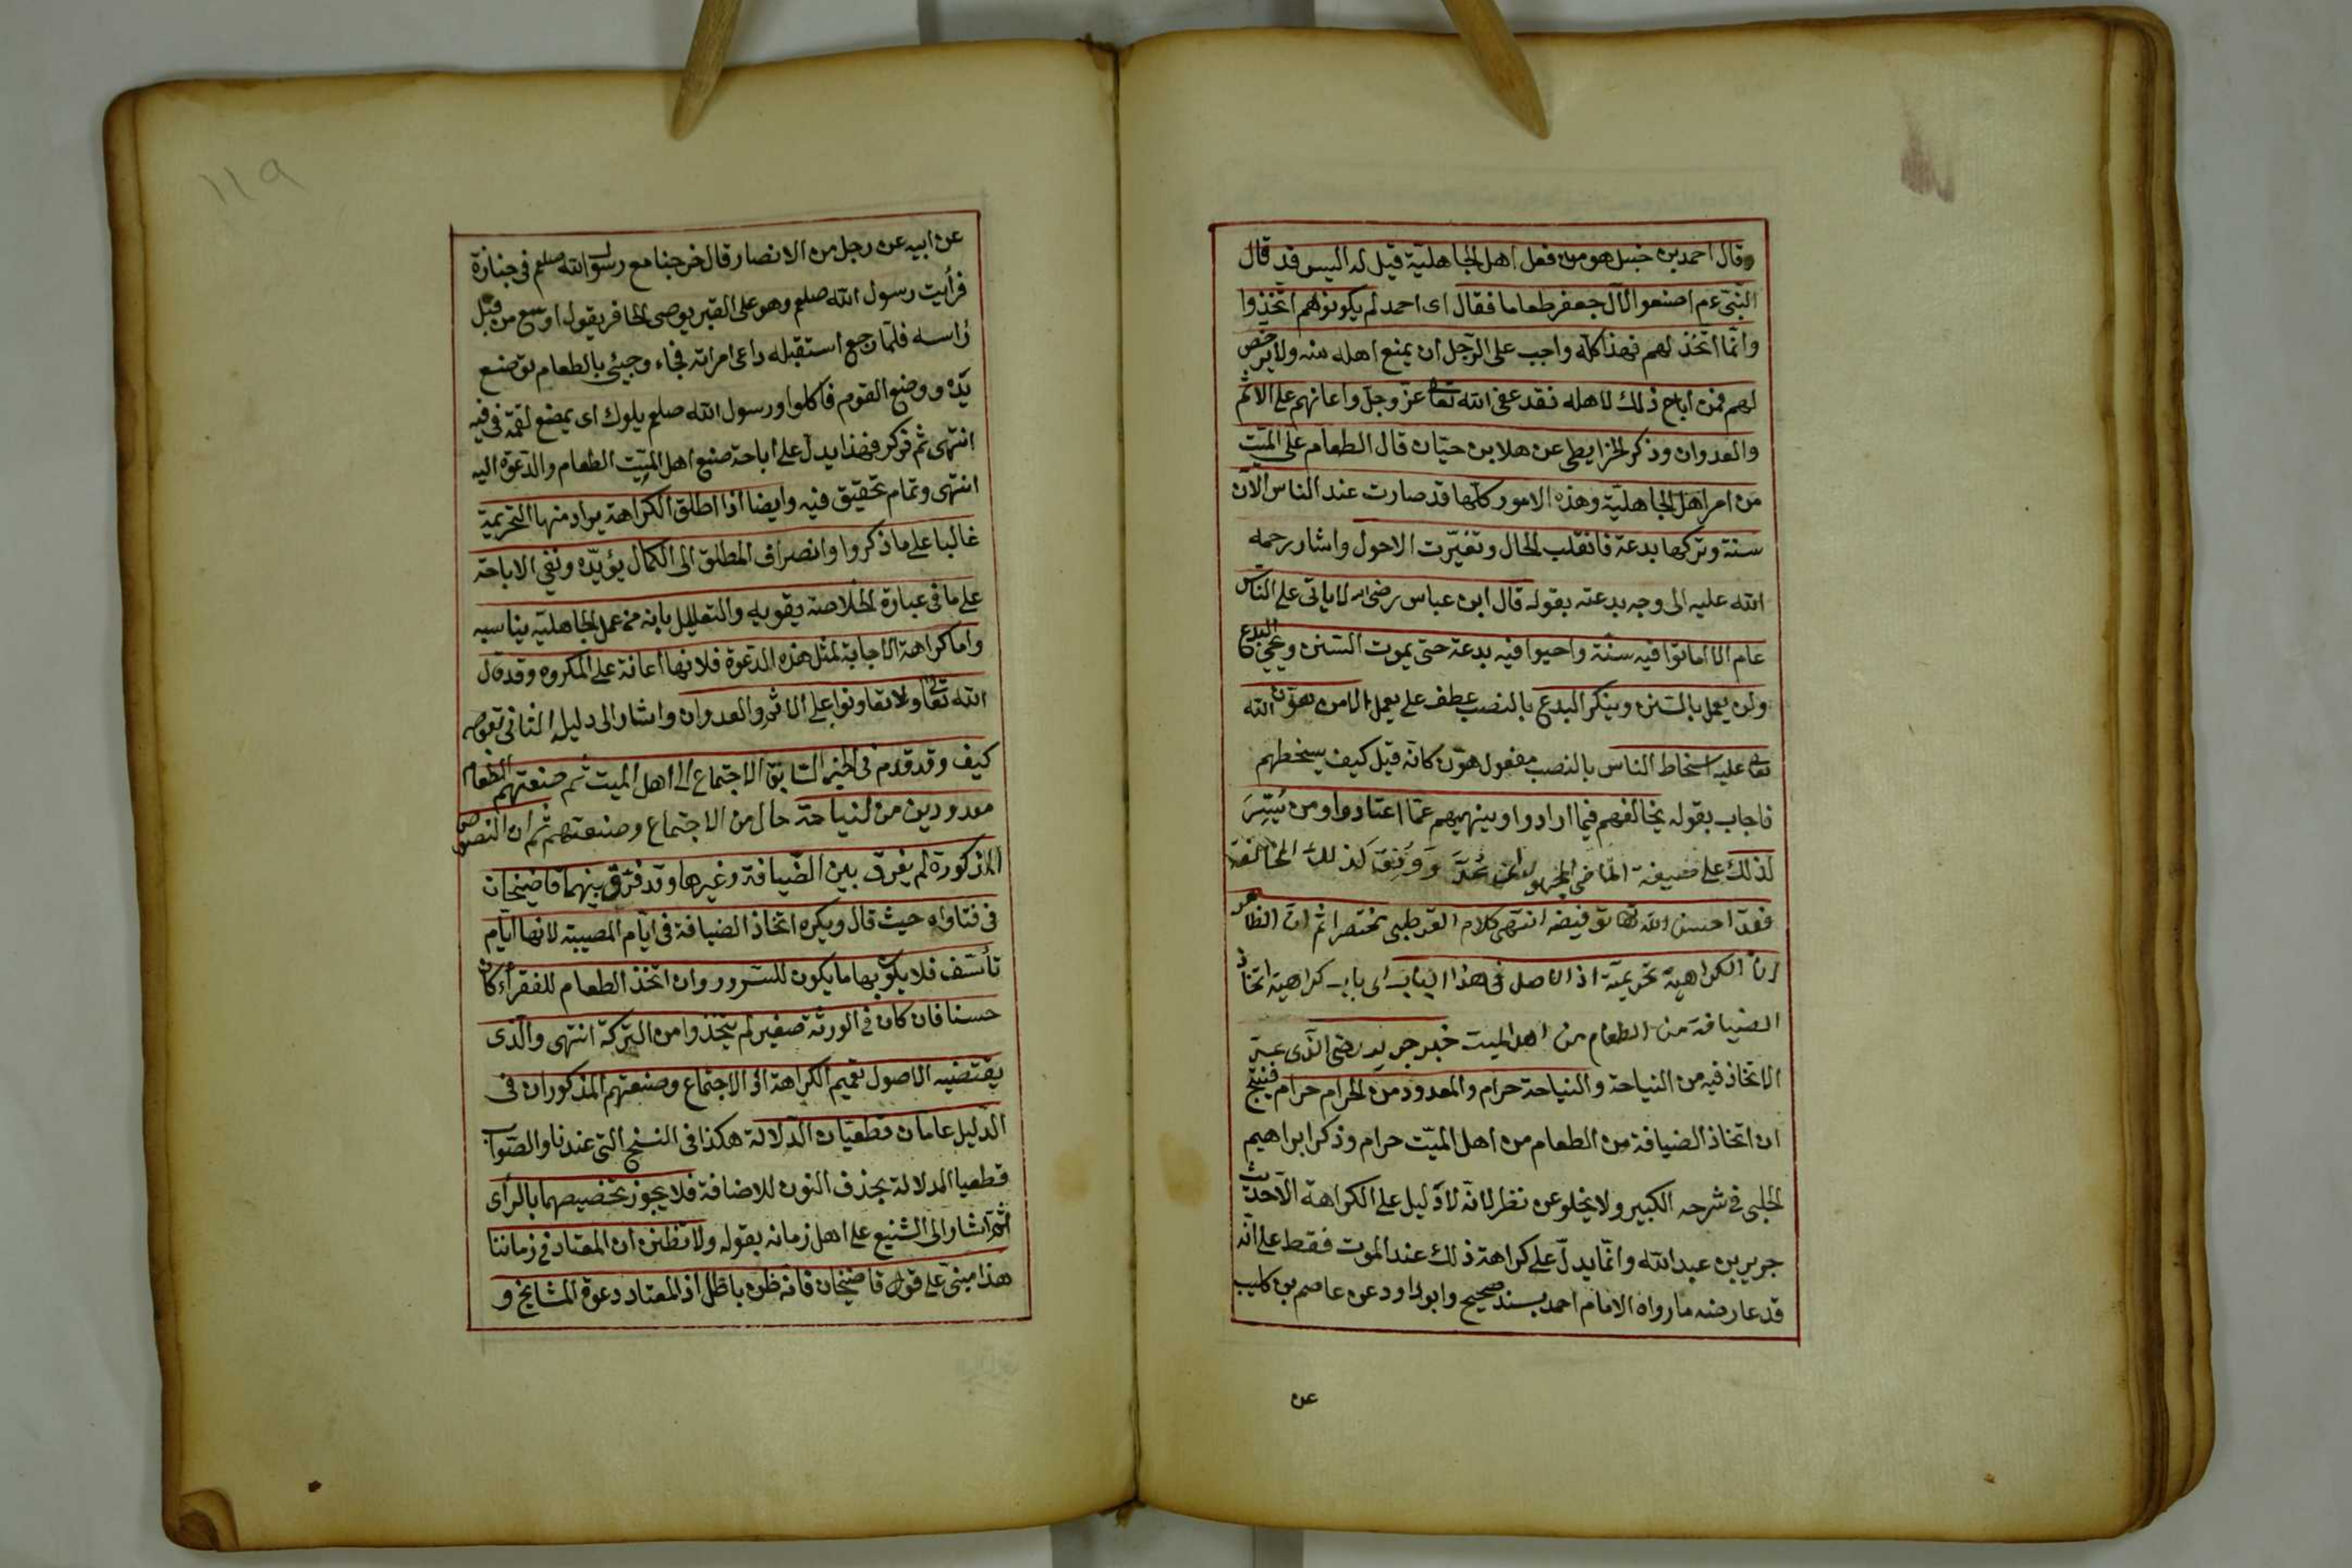 وقال احمد بن حنبل هو من فعل اهل الجاهلية قيل له اليس قد قال
النبى ءم اصنعوا لآل جعفر طعاما فقال اى احمد لم يكونوهم اتخذوا
وانما اتخذ لهم فهذا كله واجب على الرجل ان يمنع اهله منه ولا يرخص
لهم فمن اباح ذلك لاهله فقد عصى الله تعالى عز وجل واعانهم على الاثم
والعدوان وذكر الخرايطى عن هلا بن حيان قال الطعام على الميت
من امر اهل الجاهلية وهذه الامور كلها قد صارت عند الناس الآن
سنة وتركها بدعة فانقلب الحال وتغيرت الاحول واشار رحمه
الله عليه الى وجه بدعته بقوله قال ابن عباس رضى الله لا ياتى على الناس
عام الا اماتوا فيه سنة واحيوا فيه بدعة حتى يموت السنن وتحيى البدع
ولن يعمل بالسنن وينكر البدع بالنصب عطف على يعمل الا من هون الله
تعالى عليه اسخاط الناس بالنصب مفعول هون كانه قيل كيف يسخطهم
فاجاب بقوله يخالفهم فيما ارادوا وينهيهم عما اعتادوا ومن يُسِّرَ
لذلك على صيغة الماضى المجهول ووُفِّقَ كذلك المخالفة
فقد احسن الله تعالى توفيقه انتهى كلام القرطبى مختصرا ثم ان الظاهر
ان الكراهية تحريمية اذ الاصل فى هذا الباب اى باب كراهية اتخاذ
الضيافة من الطعام من اهل الميت خبر جرير رضى الذى عد
الاتخاذ فيه من النياحة والنياحة حرام والمعدود من الحرام حرام فينتج
ان اتخاذ الضيافة من الطعام من اهل الميت حرام وذكر ابراهيم
الحلبى فى شرحه الكبير ولا يخلو عن نظر لانه لا دليل على الكراهة الا حديث
جرير بن عبد الله وانما يدل على كراهة ذلك عند الموت فقط على انه
قد عارضه ما رواه الامام احمد بسند صحيح وابو داود عن عاصم بن كليب
عن
١١٩
عن ابيه عن رجل من الانصار قال خرجنا مع رسول الله صلعم فى جنازة
فرأيت رسول الله صلعم وهو على القبر يوصى الحافر يقول اوسع من قبل
رأسه فلما رجع استقبله داعى امراته فجاء وجيئى بالطعام فوضع
يده ووضع القوم فاكلوا ورسول الله صلعم يلوك اى يمضغ لقمة فى فيه
انتهى ثم ذكر فهذا يدل على اباحة صنع اهل الميت الطعام والدعوة اليه
انتهى وتمام تحقيق فيه وايضا اذا اطلق الكراهة يراد منها التحريمية
غالبا على ما ذكروا وانصراف المطلق الى الكمال يؤيده ونفى الاباحة
على ما فى عبارة الخلاصة يقويه والتعليل بانه من عمل الجاهلية يناسبه
واما كراهة الاجابة لمثل هذه الدعوة فلانها اعانة على المكروه وقد قال
الله تعالى ولا تعاونوا على الاثم والعدوان واشار الى دليله الثانى بقوله
كيف وقد قدم فى الخبر السابق الاجتماع الى اهل الميت ثم صنعتهم الطعام
معدودين من النياحة حال من الاجتماع وصنعتهم ثم ان النصوص
المذكورة لم يفرق بين الضيافة وغيرها وقد فرق بينهما قاضيخان
فى فتاواه حيث قال ويكره اتخاذ الضيافة فى ايام المصيبة لانها ايام
تأسف فلا يكون بها ما يكون للسرور وان اتخذ الطعام للفقراء كان
حسنا فان كان فى الورثة صغير لم يتخذوا من التركة انتهى والذى
يقتضيه الاصول تعميم الكراهة اذ الاجتماع وصنعتهم المذكوران فى
الدليل عامان قطعيان الدلالة هكذا فى النسخ التى عندنا والصواب
قطعيا الدلالة بحذف النون للاضافة فلا يجوز تخصيصهما بالرأى
ثم اشار الى الشنيع على اهل زمانه بقوله ولا تظنن ان المعتاد فى زماننا
هذا مبنى على قول قاضيخان فانه ظن باطل اذ المعتاد دعوة المشايخ و